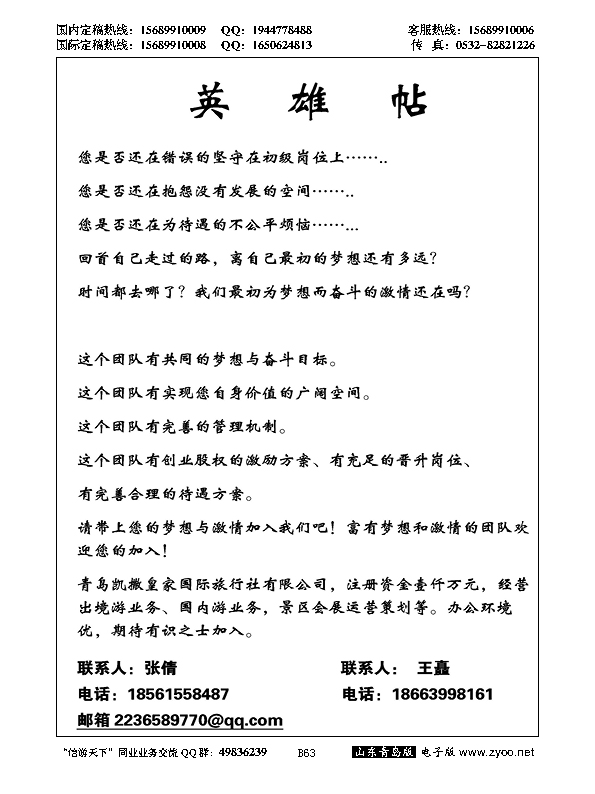 国内定稿热线：15689910009 QQ：1944778488 客服热线：15689910006
国际定稿热线：15689910008 QQ：1650624813 传 真：0532-82821226
英 雄 帖
您是否还在错误的坚守在初级岗位上……..
您是否还在抱怨没有发展的空间……..
您是否还在为待遇的不公平烦恼……...
回首自己走过的路，离自己最初的梦想还有多远？
时间都去哪了？我们最初为梦想而奋斗的激情还在吗？
这个团队有共同的梦想与奋斗目标。
这个团队有实现您自身价值的广阔空间。
这个团队有完善的管理机制。
这个团队有创业股权的激励方案、有充足的晋升岗位、
有完善合理的待遇方案。
请带上您的梦想与激情加入我们吧！富有梦想和激情的团队欢
迎您的加入！
青岛凯撒皇家国际旅行社有限公司，注册资金壹仟万元，经营
出境游业务、国内游业务，景区会展运营策划等。办公环境
优，期待有识之士加入。
联系人：张倩 联系人： 王矗
电话：18561558487 电话：18663998161
邮箱 2236589770@qq.com
“信游天下”同业业务交流QQ群：49836239 B63 山东青岛版 电子版 www.zyoo.net